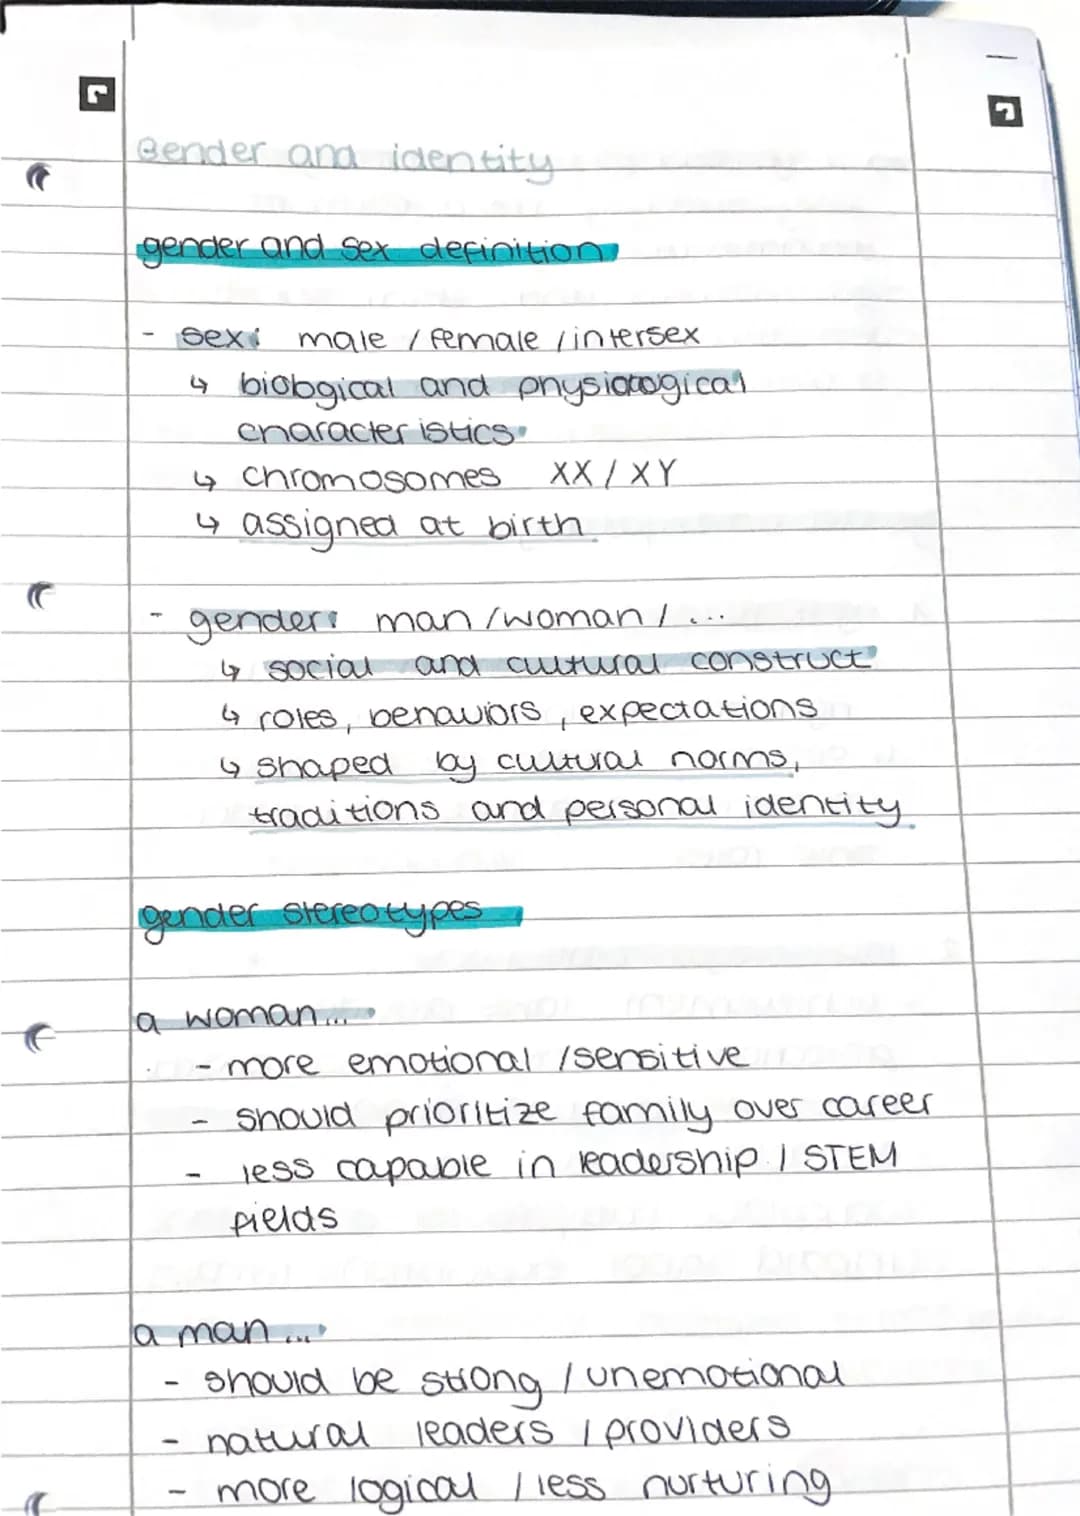 Gender and identity
gender and sex definition
- sex: male / female / intersex
↳ biological and physiological
characteristics
↳ chromosomes XX / XY
↳ assigned at birth
- gender: man / woman / ...
↳ social and cultural construct
↳ roles, behaviors, expectations
↳ shaped by cultural norms,
traditions and personal identity
gender stereotypes
a woman...
- more emotional / sensitive
- should prioritize family over career
- less capable in leadership / STEM
fields
a man...
- should be strong / unemotional
- natural leaders / providers
- more logical / less nurturing